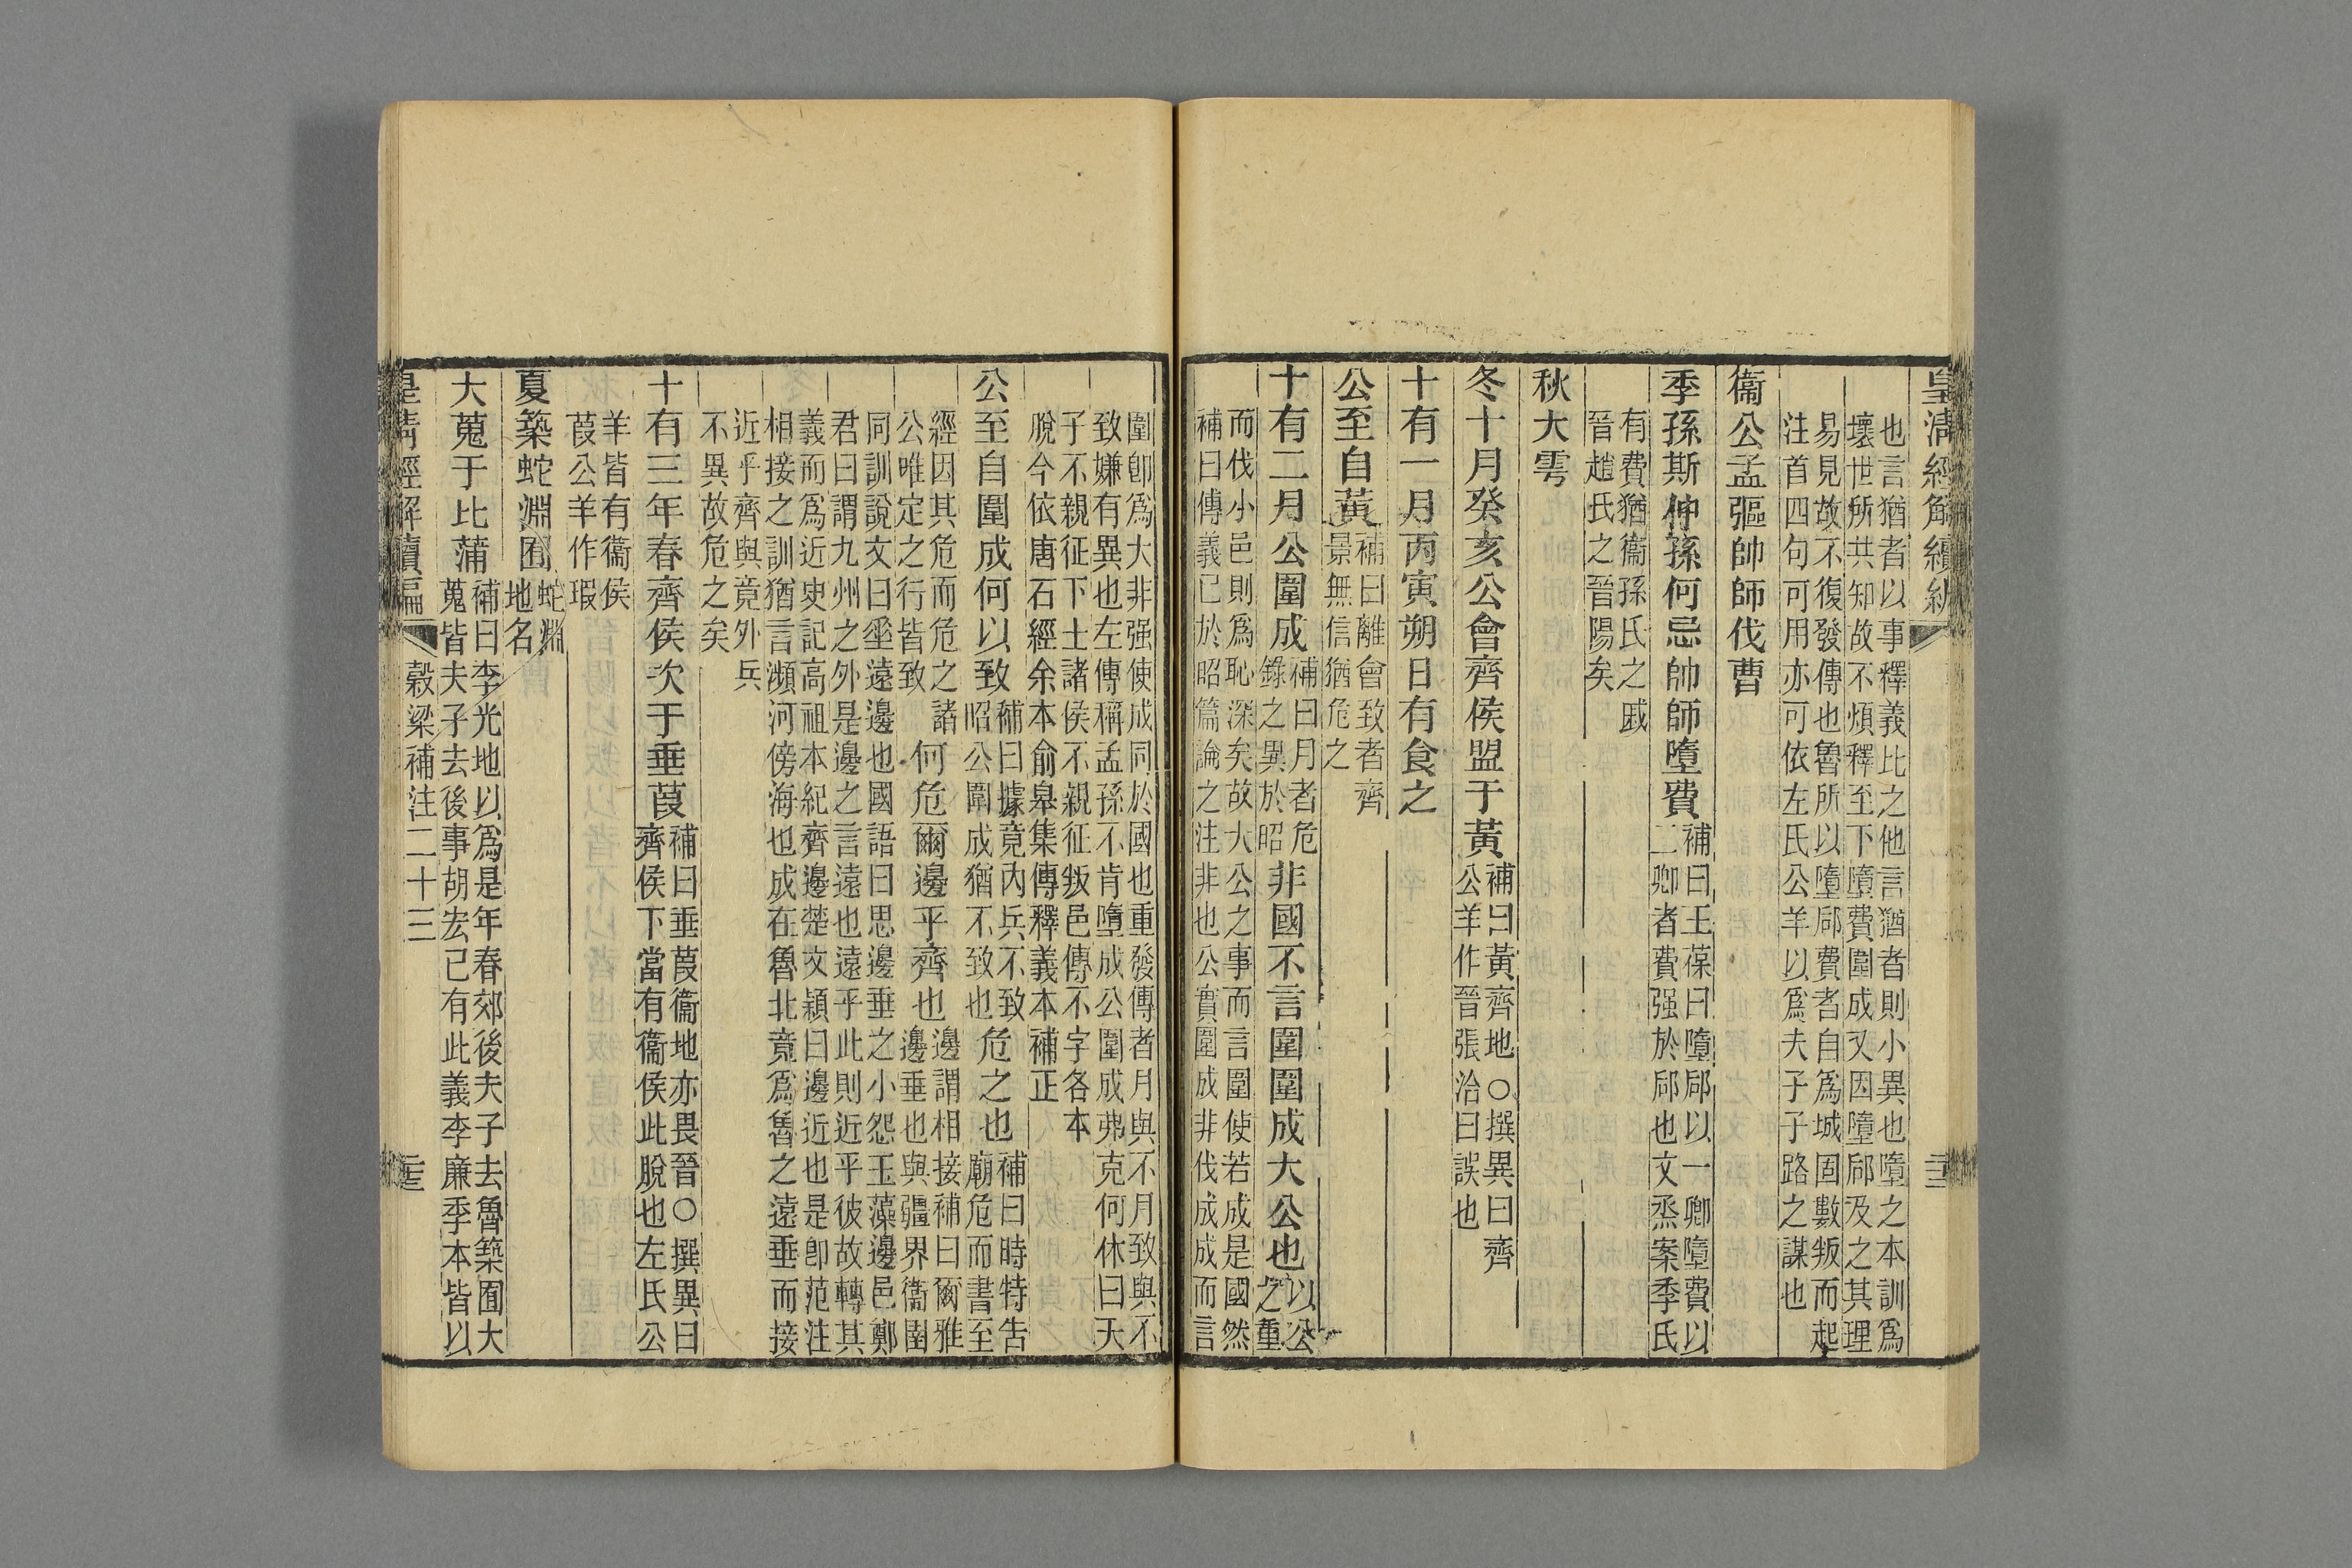 皇清經解續編
也言猶者以事釋義比之他言猶者則小異也墮之本訓爲
壞世所共知故不煩釋至下墮費圍成又因墮郈及之其理
易見故不復發傳也魯所以墮郈費者自爲城固數叛而起
注首四句可用亦可依左氏公羊以爲夫子子路之謀也
衞公孟彄帥師伐曹
季孫斯仲孫何忌帥師墮費
補曰王葆曰墮郈以一卿墮費以
二卿者費强於郈也文烝案季氏
有費猶衞孫氏之戚
晉趙氏之晉陽矣
秋大雩
冬十月癸亥公會齊侯盟于黃
補曰黃齊地○撰異曰齊
公羊作晉張洽曰誤也
十有一月丙寅朔日有食之
公至自黃
補曰離會致者齊
景無信猶危之
十有二月公圍成
補曰月者危
錄之異於昭
非國不言圍圍成大公也
以公
之重
而伐小邑則爲恥深矣故大公之事而言圍使若成是國然
補曰傳義已於昭篇論之注非也公實圍成非伐成成而言
圍卽爲大非强使成同於國也重發傳者月與不月致與不
致嫌有異也左傳稱孟孫不肯墮成公圍成弗克何休曰天
子不親征下士諸侯不親征叛邑傳不字各本
脫今依唐石經余本俞皋集傳釋義本補正
公至自圍成何以致
補曰據竟內兵不致
昭公圍成猶不致也
危之也
補曰時特告
廟危而書至
經因其危而危之諸
公唯定之行皆致
何危爾邊乎齊也
邊謂相接補曰爾雅
邊垂也與疆界衞圉
同訓說文曰垂遠邊也國語曰思邊垂之小怨玉藻邊邑鄭
君曰謂九州之外是邊之言遠也遠乎此則近乎彼故轉其
義而爲近史記高祖本紀齊邊楚文穎曰邊近也是卽范注
相接之訓猶言瀕河傍海也成在魯北竟爲魯之遠垂而接
近乎齊與竟外兵
不異故危之矣
十有三年春齊侯次于垂葭
補曰垂葭衞地亦畏晉○撰異曰
齊侯下當有衞侯此脫也左氏公
羊皆有衞侯
葭公羊作瑕
夏築蛇淵囿
蛇淵
地名
大蒐于比蒲
補曰李光地以爲是年春郊後夫子去魯築囿大
蒐皆夫子去後事胡宏已有此義李廉季本皆以
皇清經解續編
穀梁補注二十三